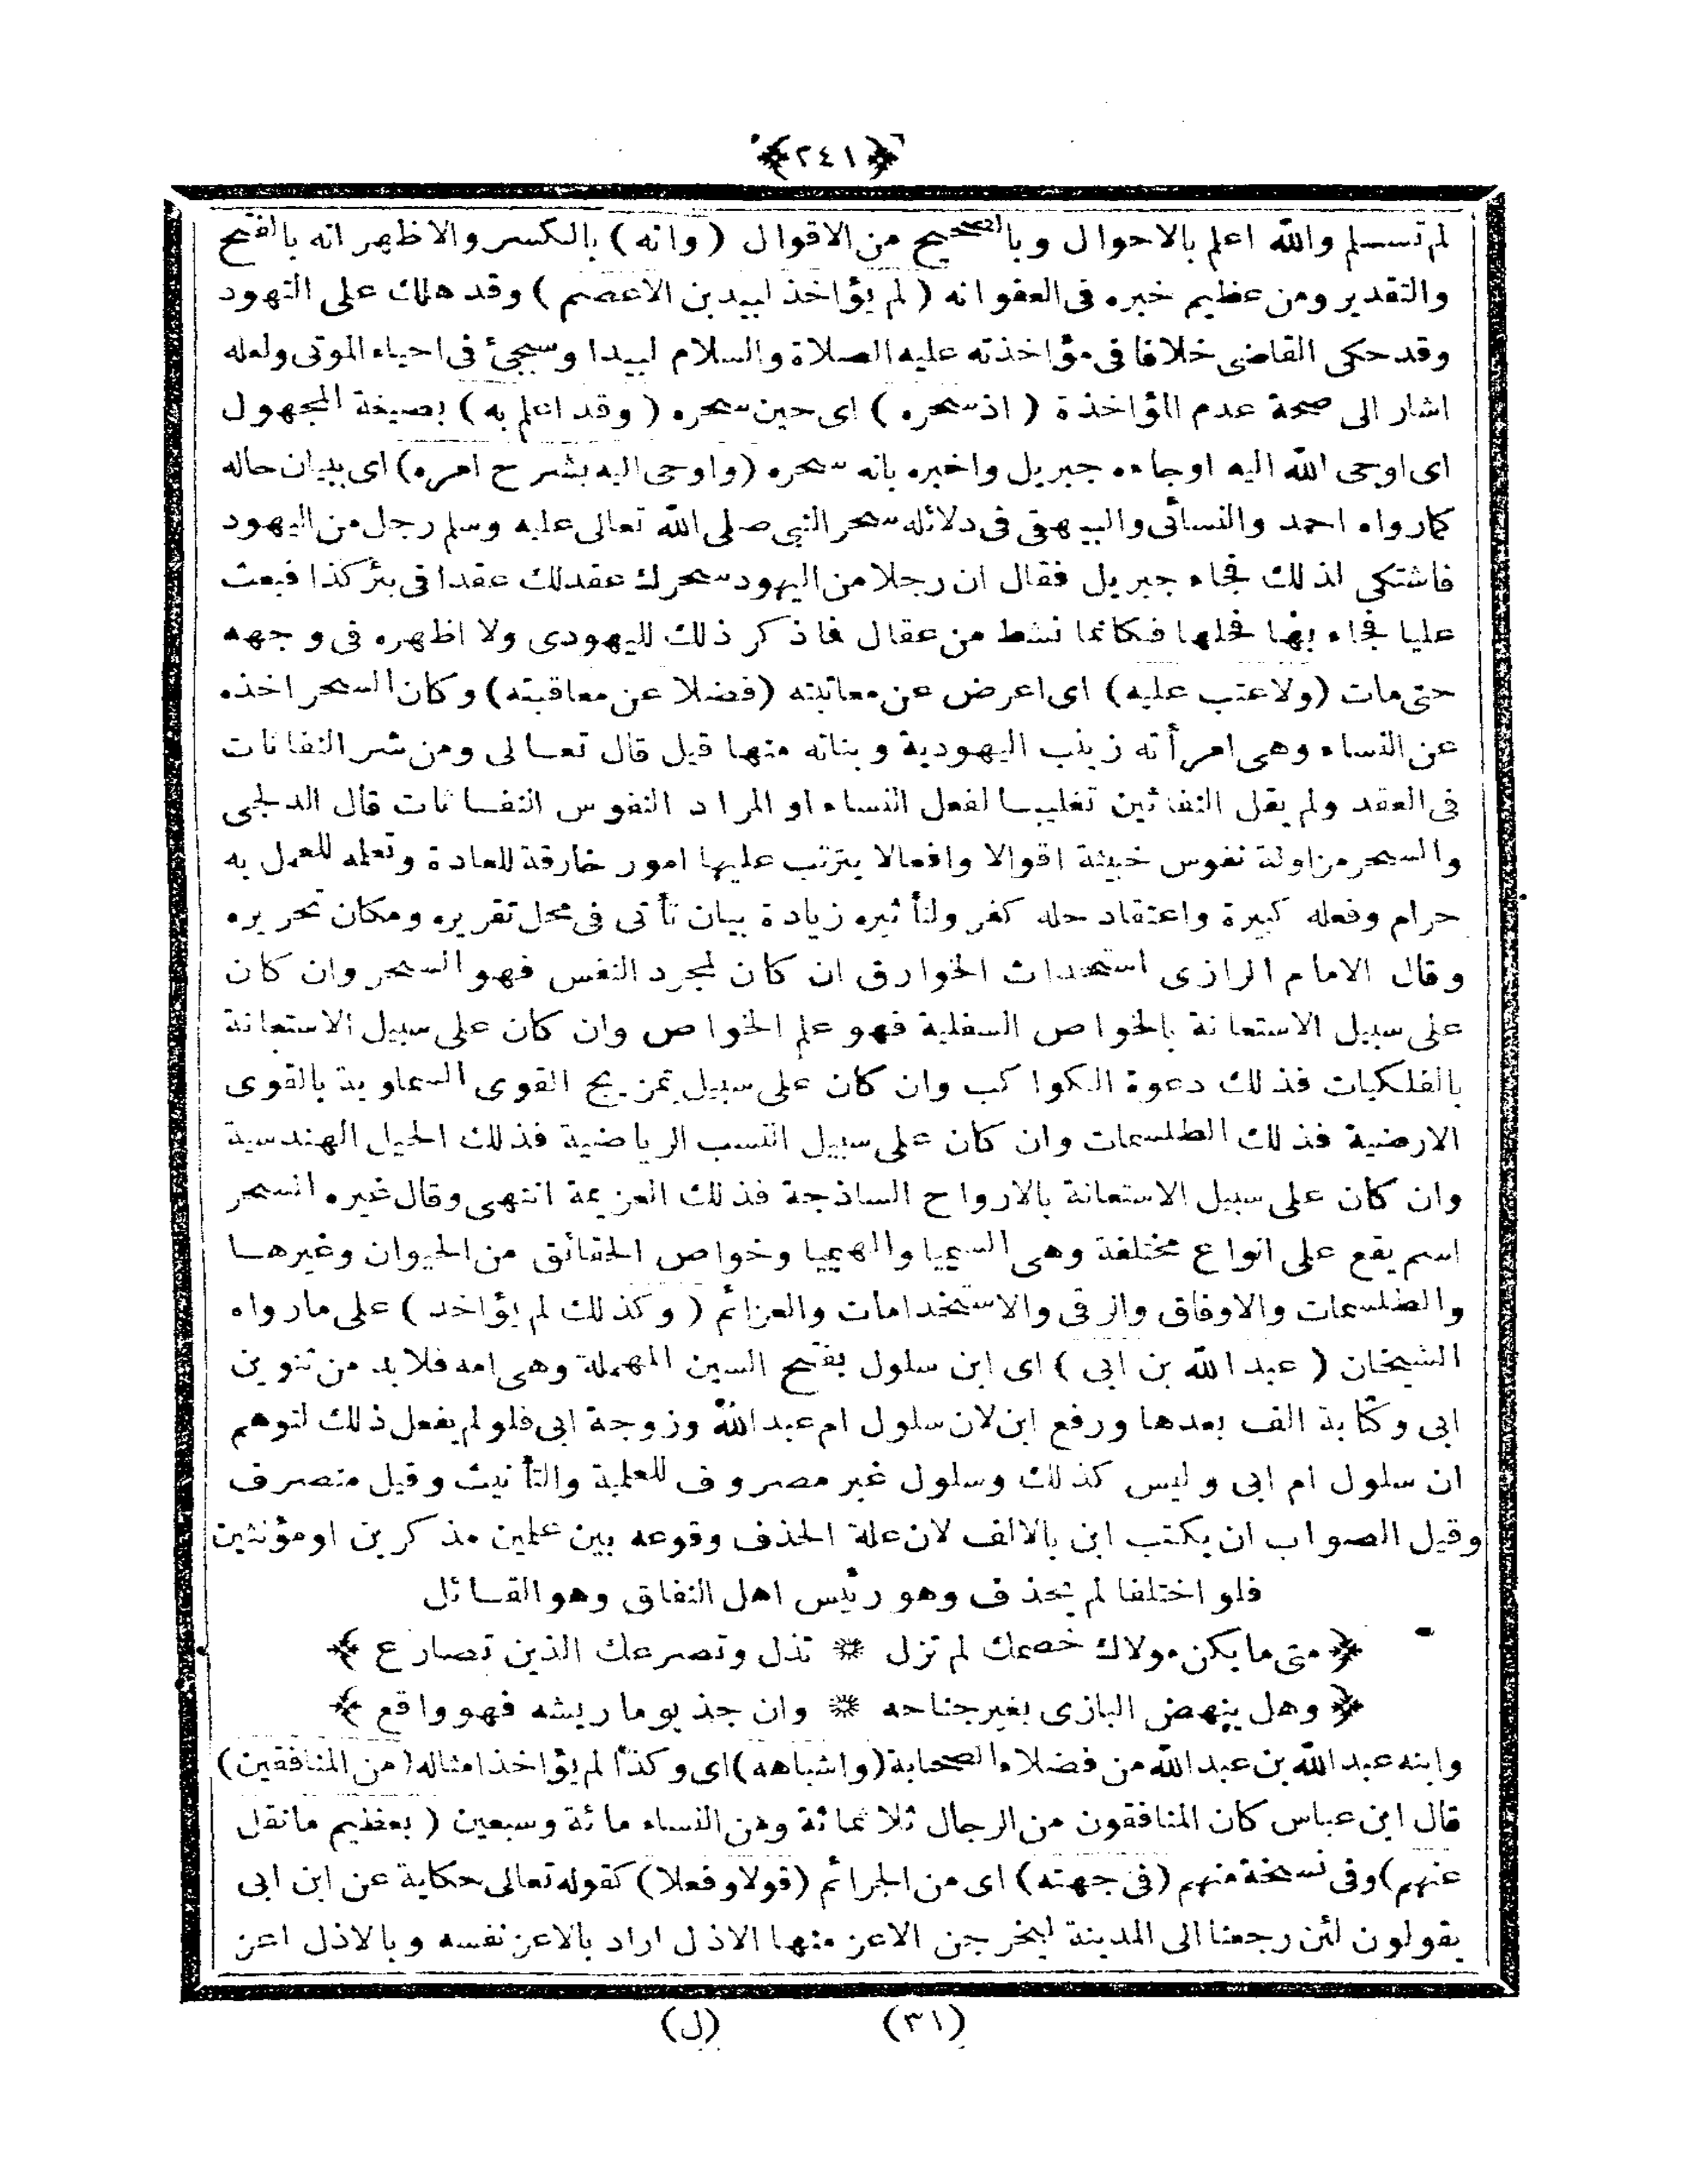 ﴿٢٤١﴾
لم تسلم والله اعلم بالاحوال وبالصحيح من الاقوال (وانه) بالكسر والاظهر انه بالفتح
والتقدير ومن عظيم خبره فى العفو انه (لم يؤاخذ لبيد بن الاعصم) وقد هلك على التهود
وقد حكى القاضى خلافا فى مؤاخذته عليه الصلاة والسلام لبيدا وسيجئ فى احياء الموتى ولعله
اشار الى صحة عدم المؤاخذة (اذ سحره) اى حين سحره (وقد اعلم به) بصيغة المجهول
اى اوحى الله اليه او جاءه جبريل واخبره بانه سحره (واوحى اليه بشرح امره) اى ببيان حاله
كما رواه احمد والنسائى والبيهقى فى دلائله سحر النبى صلى الله تعالى عليه وسلم رجل من اليهود
فاشتكى لذلك فجاء جبريل فقال ان رجلا من اليهود سحرك عقد لك عقدا فى بئر كذا فبعث
عليا فجاء بها فحلها فكانما نشط من عقال فما ذكر ذلك لليهودى ولا اظهره فى وجهه
حتى مات (ولا عتب عليه) اى اعرض عن معاتبته (فضلا عن معاقبته) وكان السحر اخذه
عن النساء وهى امرأته زينب اليهودية وبناته منها قيل قال تعالى ومن شر النفاثات
فى العقد ولم يقل النفاثين تغليبا لفعل النساء او المراد النفوس النفاثات قال الدلجى
والسحر مزاولة نفوس خبيثة اقوالا وافعالا يترتب عليها امور خارقة للعادة وتعلمه للعمل به
حرام وفعله كبيرة واعتقاد حله كفر ولتأثيره زيادة بيان تأتى فى محل تقريره ومكان تحريره
وقال الامام الرازى استحداث الخوارق ان كان لمجرد النفس فهو السحر وان كان
على سبيل الاستعانة بالخواص السفلية فهو علم الخواص وان كان على سبيل الاستعانة
بالفلكيات فذلك دعوة الكواكب وان كان على سبيل تمزيج القوى السماوية بالقوى
الارضية فذلك الطلسمات وان كان على سبيل النسب الرياضية فذلك الحيل الهندسية
وان كان على سبيل الاستعانة بالارواح الساذجة فذلك العزيمة انتهى وقال غيره السحر
اسم يقع على انواع مختلفة وهى السيميا والهيميا وخواص الحقائق من الحيوان وغيرها
والطلسمات والاوفاق والرقى والاستخدامات والعزائم (وكذلك لم يؤاخذ) على ما رواه
الشيخان (عبد الله بن ابى) اى ابن سلول بفتح السين المهملة وهى امه فلا بد من تنوين
ابى وكتابة الف بعدها ورفع ابن لان سلول ام عبد الله وزوجة ابى فلو لم يفعل ذلك لتوهم
ان سلول ام ابى وليس كذلك وسلول غير مصروف للعلمية والتأنيث وقيل منصرف
وقيل الصواب ان يكتب ابن بالالف لان علة الحذف وقوعه بين علمين مذكرين او مؤنثين
فلو اختلفا لم يحذف وهو رئيس اهل النفاق وهو القائل
﴿ متى ما يكن مولاك خصمك لم تزل ❊ تذل وتصرعك الذين تصارع ﴾
﴿ وهل ينهض البازى بغير جناحه ❊ وان جذ يوما ريشه فهو واقع ﴾
وابنه عبد الله بن عبد الله من فضلاء الصحابة (واشباهه) اى وكذا لم يؤاخذ امثاله (من المنافقين)
قال ابن عباس كان المنافقون من الرجال ثلاثمائة ومن النساء مائة وسبعين (بعظيم ما نقل
عنهم) وفى نسخة منهم (فى جهته) اى من الجرائم (قولا وفعلا) كقوله تعالى حكاية عن ابن ابى
يقولون لئن رجعنا الى المدينة ليخرجن الاعز منها الاذل اراد بالاعز نفسه وبالاذل اعز
(٣١) (ل)